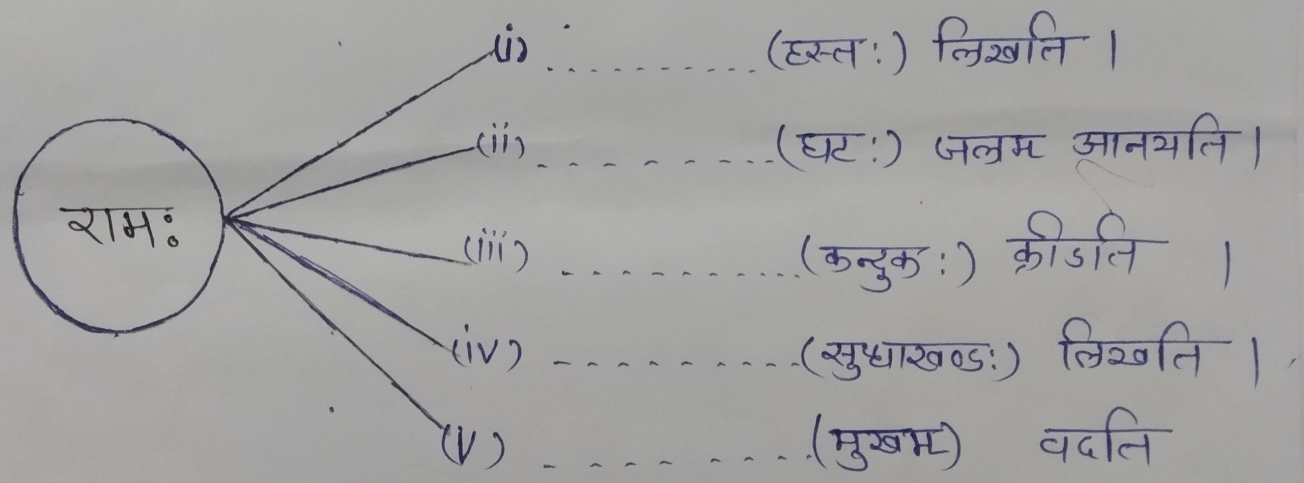 (i) .......... (हस्तः) लिखति |
(ii) - - - - - - - - - (घटः) जलम आनयति |
रामः
(iii) .......... (कन्दुकः) क्रीडति |
(iv) - - - - - - - - - (सुधाखण्डः) लिखति |
(V) - - - - - - - - - (मुखम) वदति